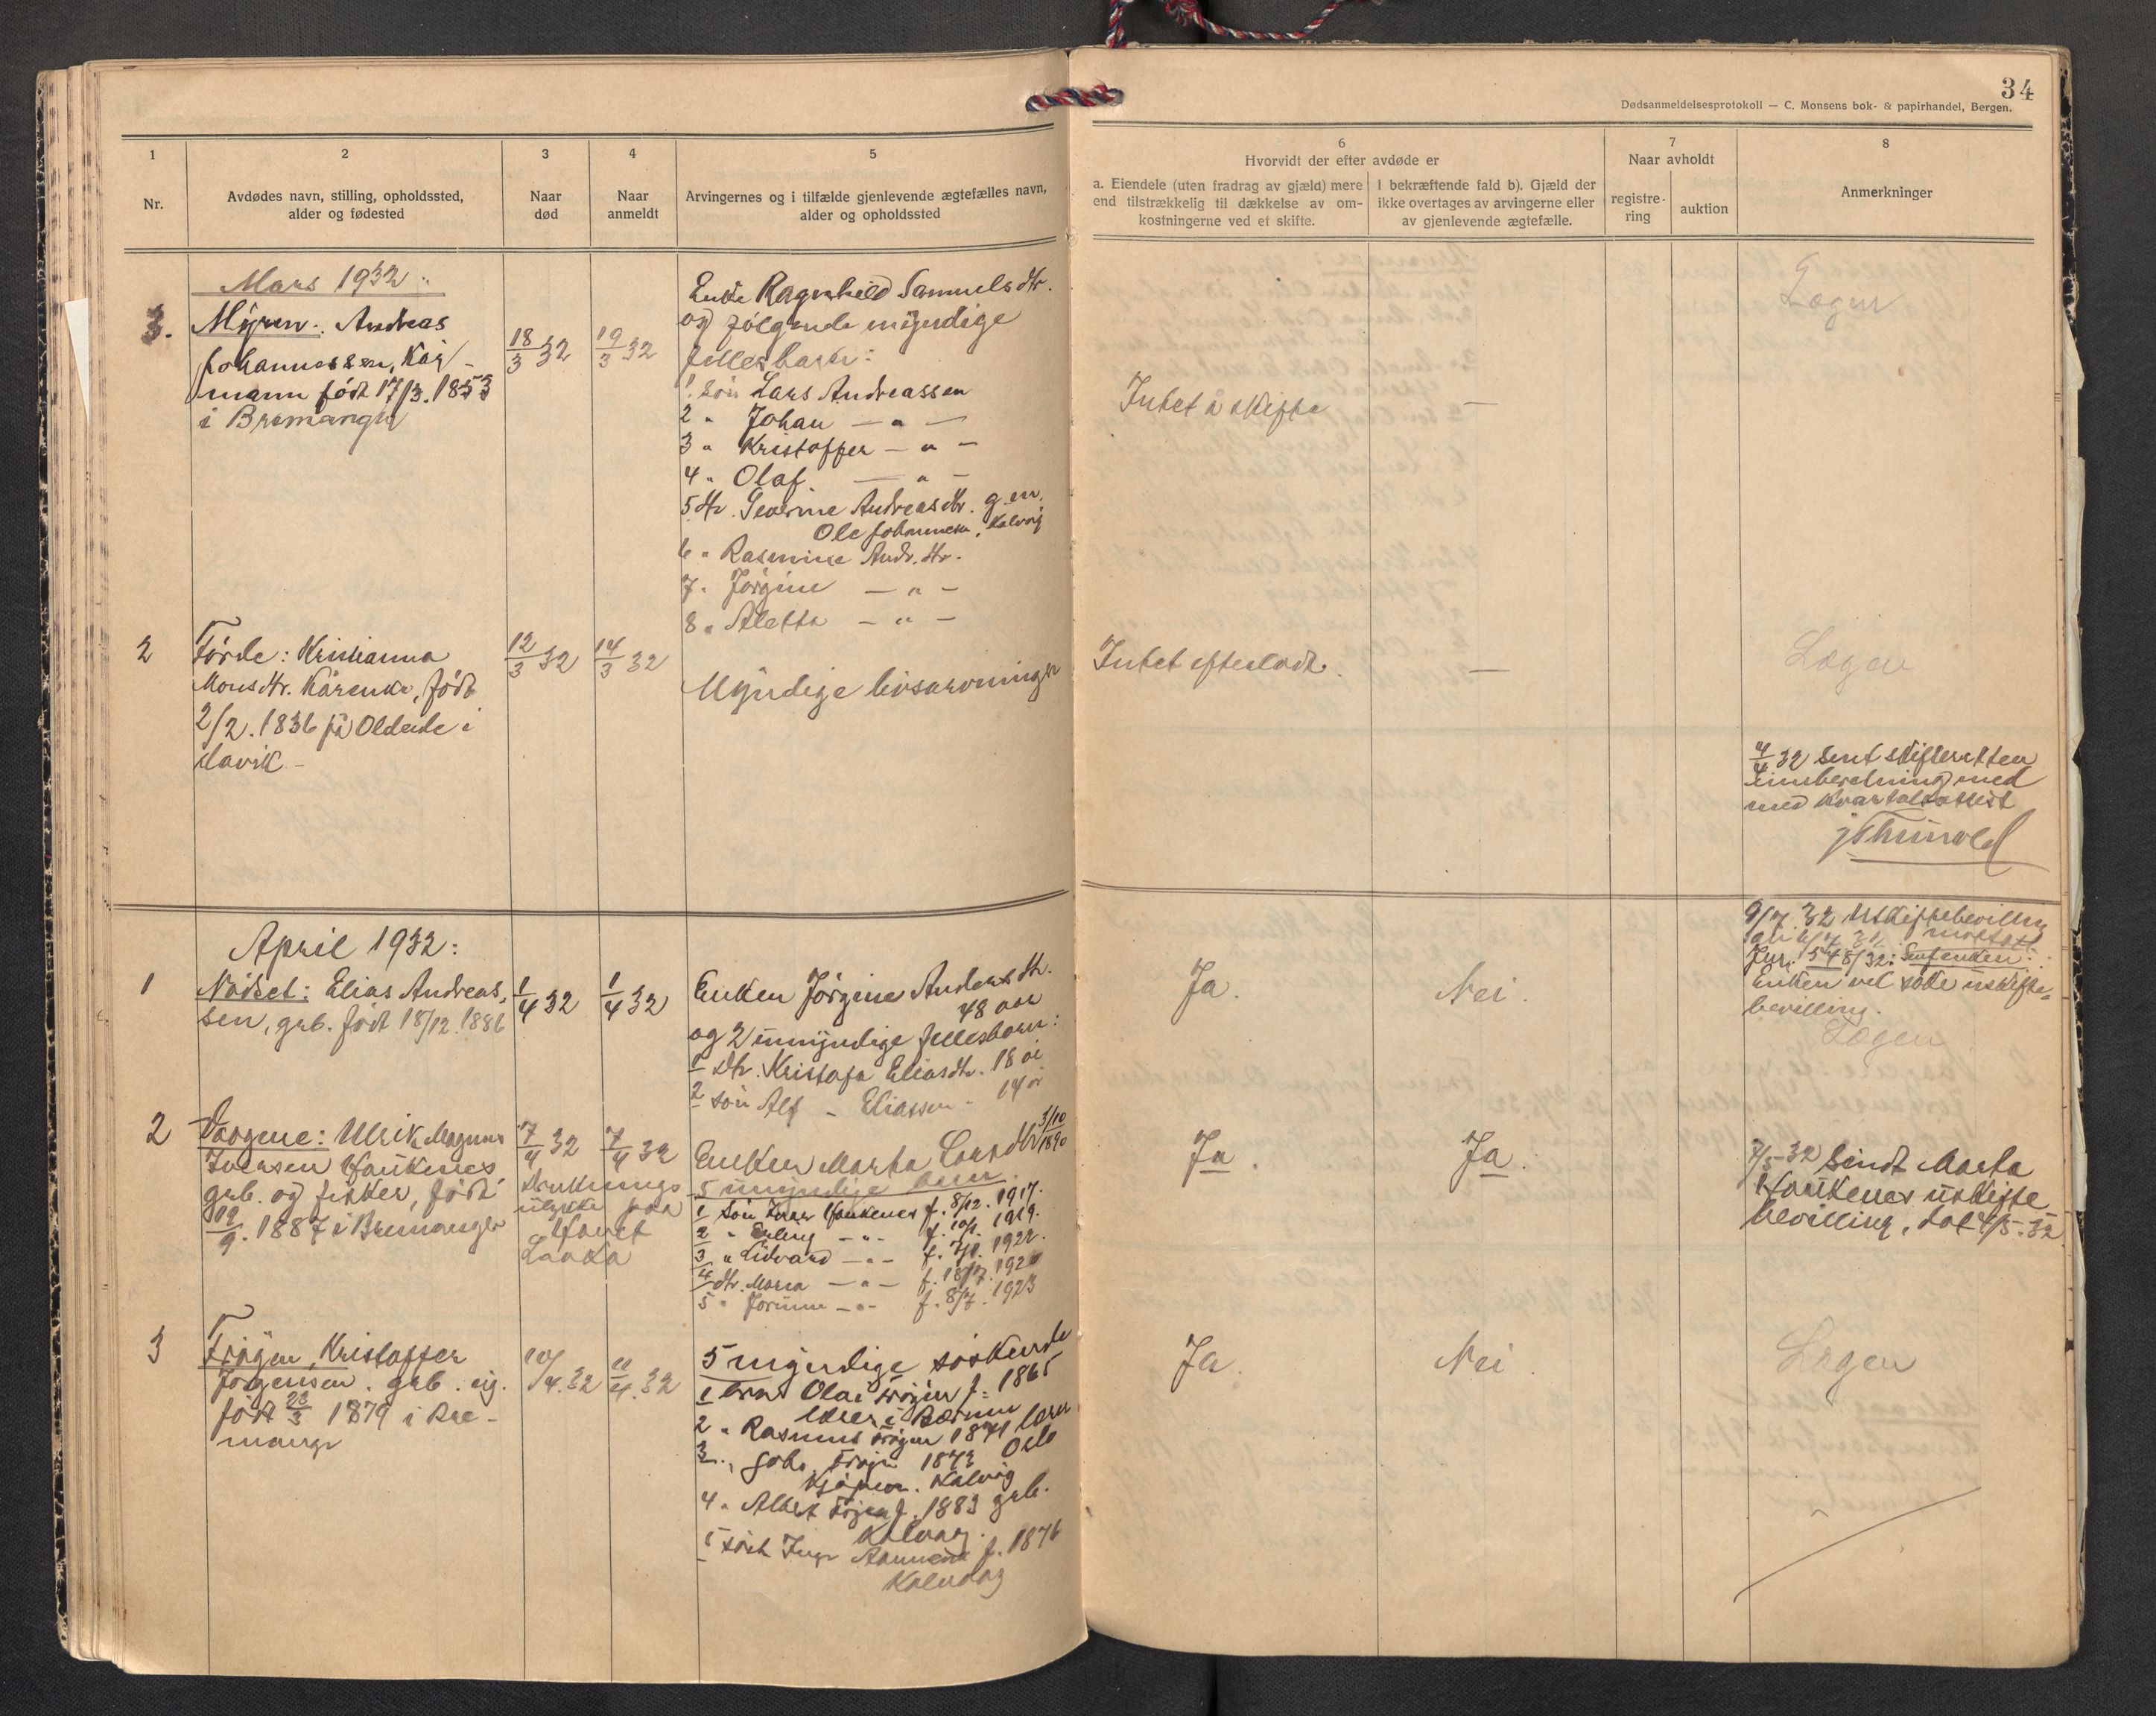 34
Dødsanmeldelsesprotokoll — C. Monsens bok- & papirhandel, Bergen.
1
Nr.
2
Avdødes navn, stilling, opholdssted,
alder og fødested
3
Naar
død
4
Naar
anmeldt
5
Arvingernes og i tilfælde gjenlevende ægtefælles navn,
alder og opholdssted
6
Hvorvidt der efter avdøde er
a. Eiendele (uten fradrag av gjæld) mere
end tilstrækkelig til dækkelse av om-
kostningerne ved et skifte.
I bekræftende fald b). Gjæld der
ikke overtages av arvingerne eller
av gjenlevende ægtefælle.
7
Naar avholdt
registre-
ring
auktion
8
Anmerkninger
Mars 1932:
3.
Myren: Andreas
Johannessen, Kår-
mann født 17/3. 1853
i Bremanger
18/3 32
19/3 32
Enke Ragnhild Samuelsdtr.
og følgende myndige
fellesbarn:
1 Søn Lars Andreassen
2 " Johan — " —
3 " Kristoffer — " —
4 " Olaf — " —
5 dtr. Severine Andreasdtr. g.m.
Ole Johannesen, Kalvåg
6 " Rasmine Andr.dtr.
7 " Jørgine — " —
8 " Aletta — " —
Intet å skifte
—
Lægen
2
Førde: Kristianna
Monsdtr. Kårenke, født
2/2. 1836 på Oldeide i
Davik -
12/3 32
14/3 32
Myndige livsarvinger
Intet efterladt.
—
Lægen
4/4 32 sent skifteretten
innberetning med
med kvartalsattest
April 1932:
1
Nødset: Elias Andreas-
sen, grb. født 18/12. 1886
1/4 32
1/4 32
Enken Jørgine Andersdtr.
48 aar
og 2 umyndige fellesbarn:
1 dtr. Kristofa Eliasdtr. 18 år
2 søn Alf - Eliassen - 14 år
Ja.
Nei.
9/7. 32 Uskiftebevilling
mottatt
Jnr. 548/32: Senfenden:
Enken vel søke uskifte-
bevilling.
Lægen
2
Vaagene: Ulrik Magnus
Iversen Haukenes
grb. og fisker, født
19/9. 1887 i Bremanger
7/4 32
7/4 32
Druknings
ulykke paa
Havet
Enken Marta Larsdtr 3/10 1890
5 umyndige barn.
1 Søn Iver Haukenes f. 8/12. 1917.
2 " Erling — " — f. 10/1. 1919.
3 " Lidvard — " — f. 7/1. 1922.
4 dtr. Maria — " — f. 18/7. 1920
5 " Jorunn — " — f. 8/7. 1923
Ja.
Ja.
7/5-32 Sendt Marta
Haukenes uskifte
bevilling, dat 4/5-32
3
Frøyen, Kristoffer
Jørgensen. grb. eig.
født 23/3 1879 i Bre-
manger
10/4.32
11/4.32
5 myndige søskende
1 bror Olai Frøyen f. 1865
lærer i Bærum
2 " Rasmus Frøyen 1871 lærer
Oslo
3 " Johs. Frøyen 1873
Kjøpm. Kalvåg
4 " Albert Frøyen f. 1883 grb.
Kalvaag.
5 søst Inga f. 1876
Kalvaag
Ja.
Nei
Lægen